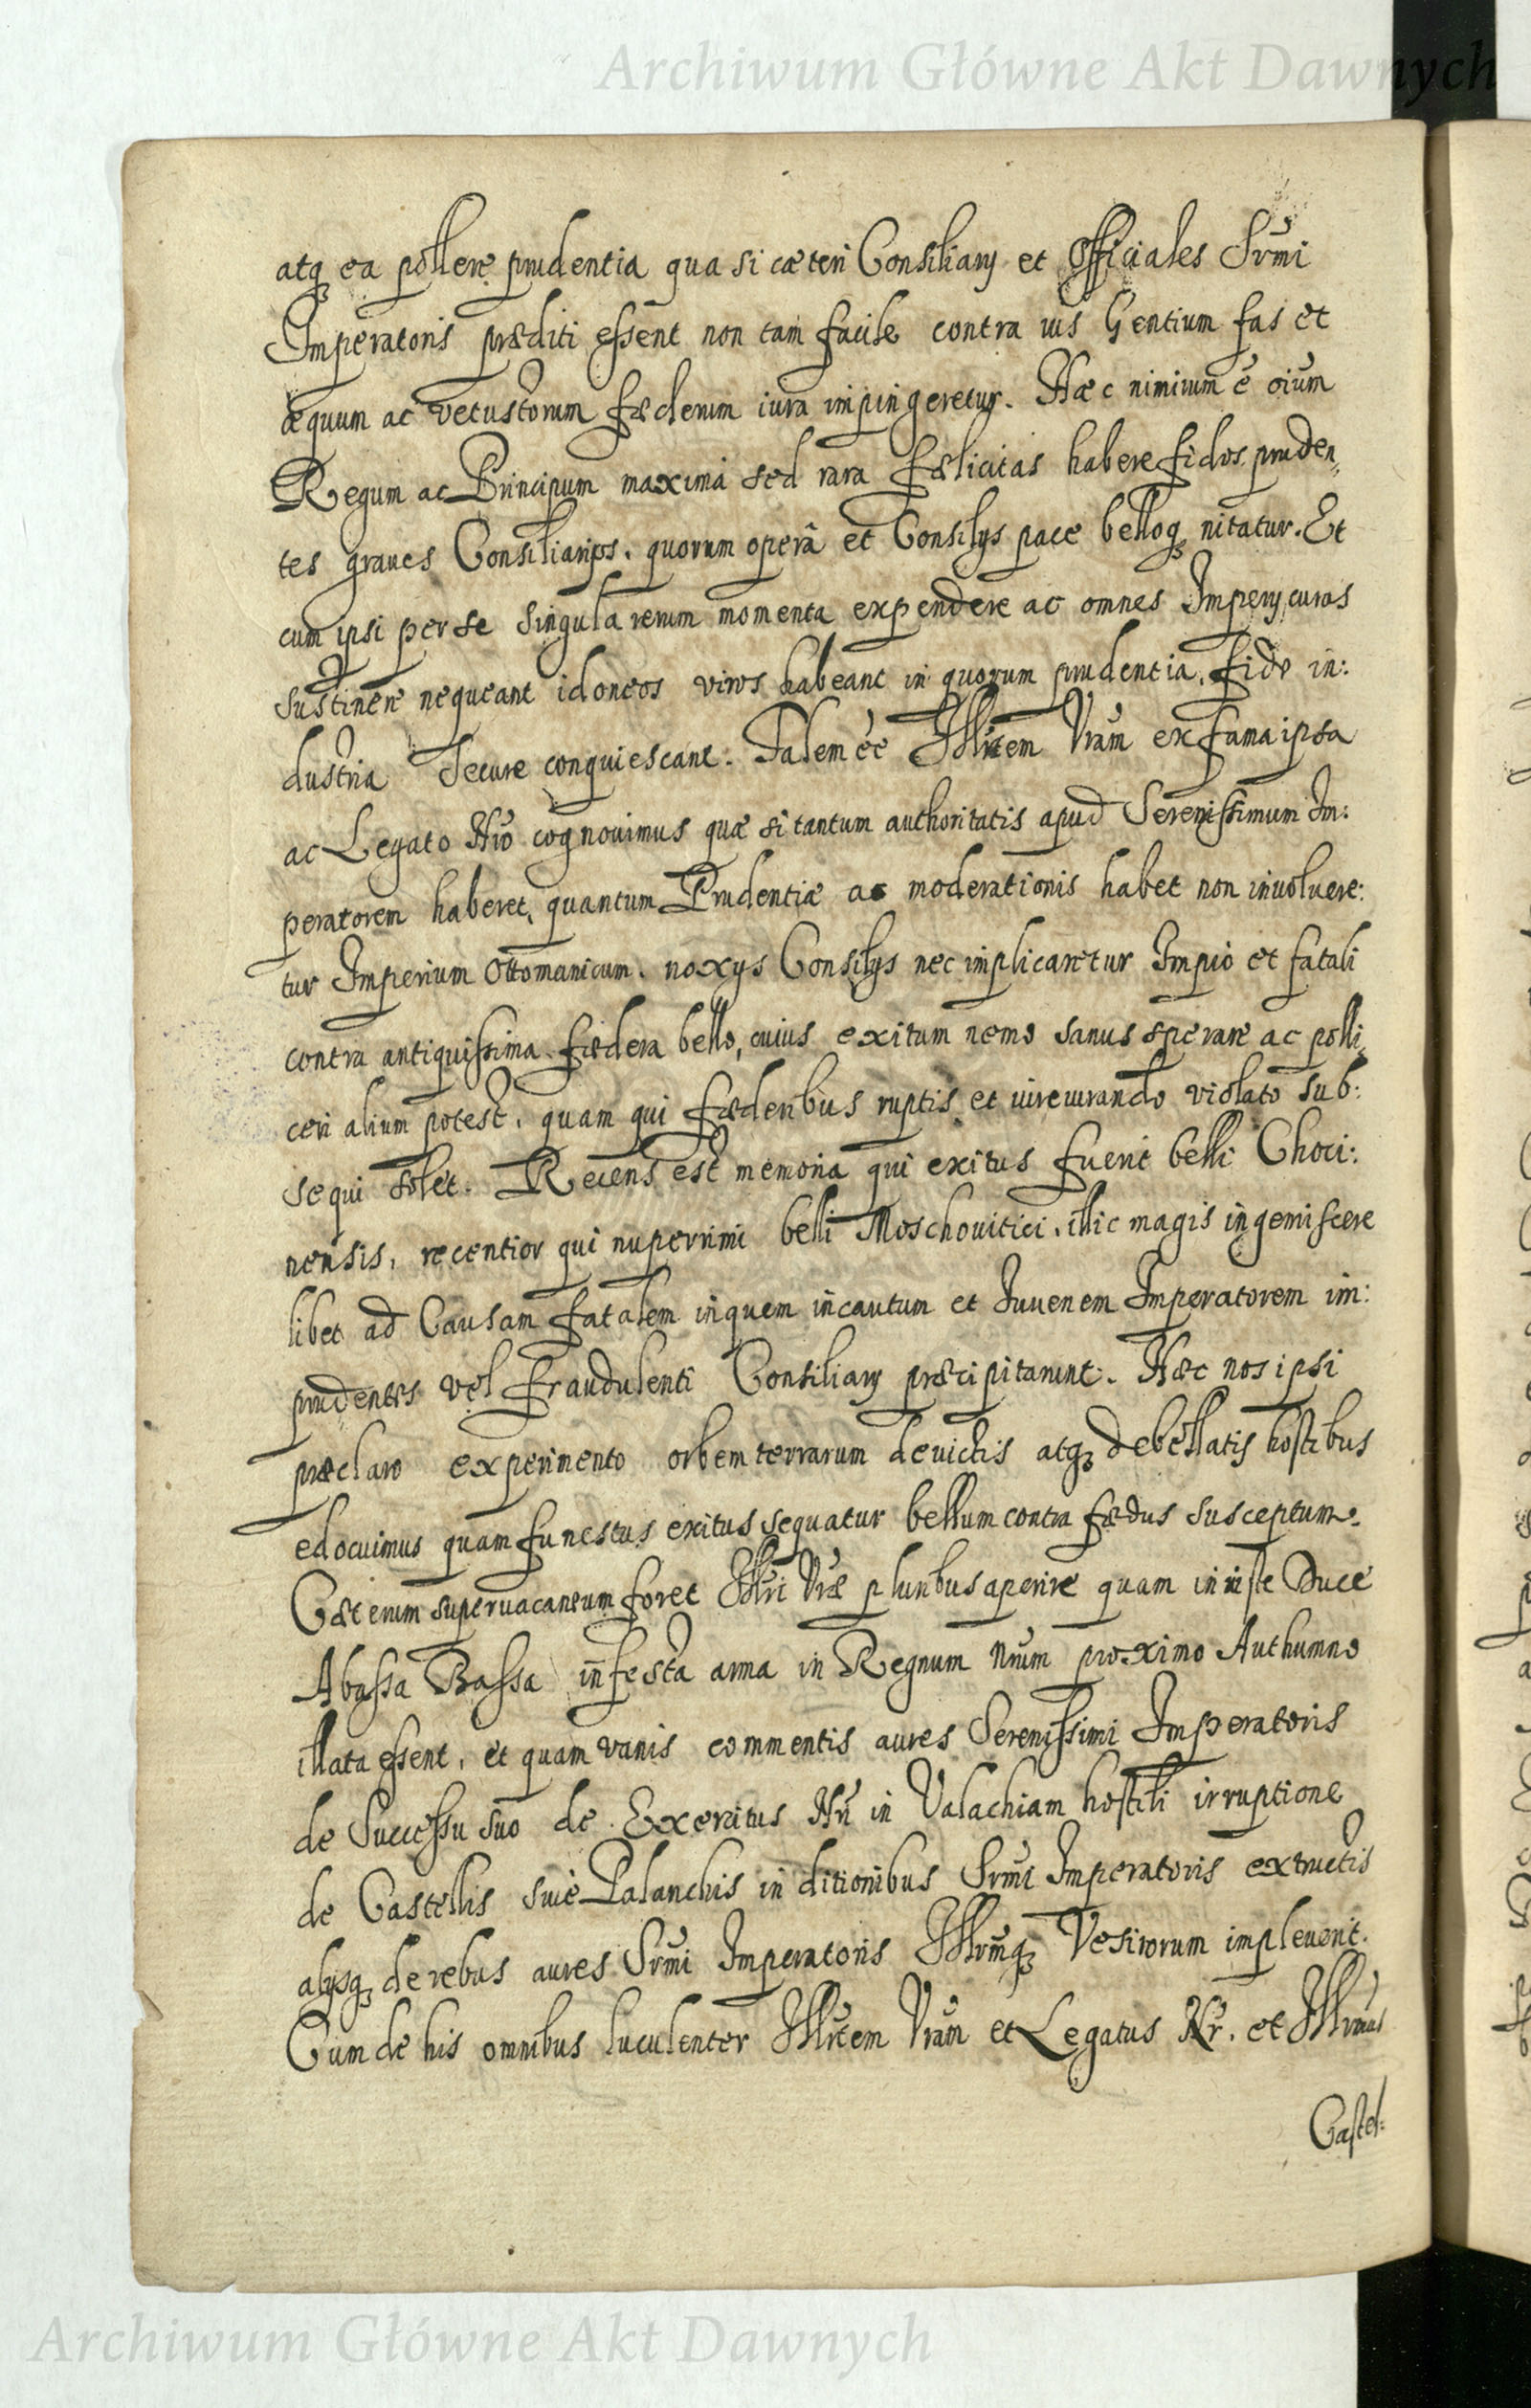 Archiwum Główne Akt Dawnych
atq ea pollere prudentia qua si cæteri Consiliarij et Officiales Srmi
Imperatoris præditi essent non tam facile contra ius Gentium fas et
æquum ac vetustorum fæderum iura impingeretur. Hæc nimirum ē oīum
Regum ac Principum maxima sed rara fælicitas habere fidos pruden„
tes graues Consiliarios, quorum operâ et Consilijs pace belloq nitatur. Et
cum ipsi per se singula rerum momenta expendere ac omnes Imperij curas
sustinere nequeant idoneos viros habeant in quorum prudentia, fide in:
dustria secure conquiescant. Talem eē Illritem Vram ex fama ipsa
ac Legato Nro cognouimus quæ si tantum authoritatis apud Serenissimum Im:
peratorem haberet, quantum Prudentiæ ac moderationis habet non inuoluere:
tur Imperium Ottomanicum noxijs Consilijs nec implicaretur Impio et fatali
contra antiquissima fædera bello, cuius exitum nemo sanus sperare ac polli„
ceri alium potest, quam qui fæderibus ruptis et iureiurando violato sub:
sequi solet. Recens est memoria qui exitus fuerit belli Choci:
nensis, recentior qui nuperrimi belli Moschouitici, illic magis ingemiscere
libet ad Causam fatalem in quem incautum et Iuuenem Imperatorem im:
prudentes vel fraudulenti Consiliarij præcipitarunt. Hæc nos ipsi
præclaro experimento orbem terrarum deuictis atq debellatis hostibus
edocuimus quam funestus exitus sequatur bellum contra fædus susceptum.
Cæterum superuacaneum foret Illri Vræ pluribus aperire quam iniuste Duce
Abassa Bassa infesta arma in Regnum Nrum proximo Authumno
illata essent, et quam vanis commentis aures Serenissimi Imperatoris
de Successu suo de Exercitus Nri in Valachiam hostili irruptione
de Castellis siue Palanchis in ditionibus Srmi Imperatoris extructis
alijsq de rebus aures Srmi Imperatoris Illrmq Vesirorum impleuerit.
Cum de his omnibus luculenter Illritem Vram et Legatus Nr. et Illrmus
Castel:
Archiwum Główne Akt Dawnych